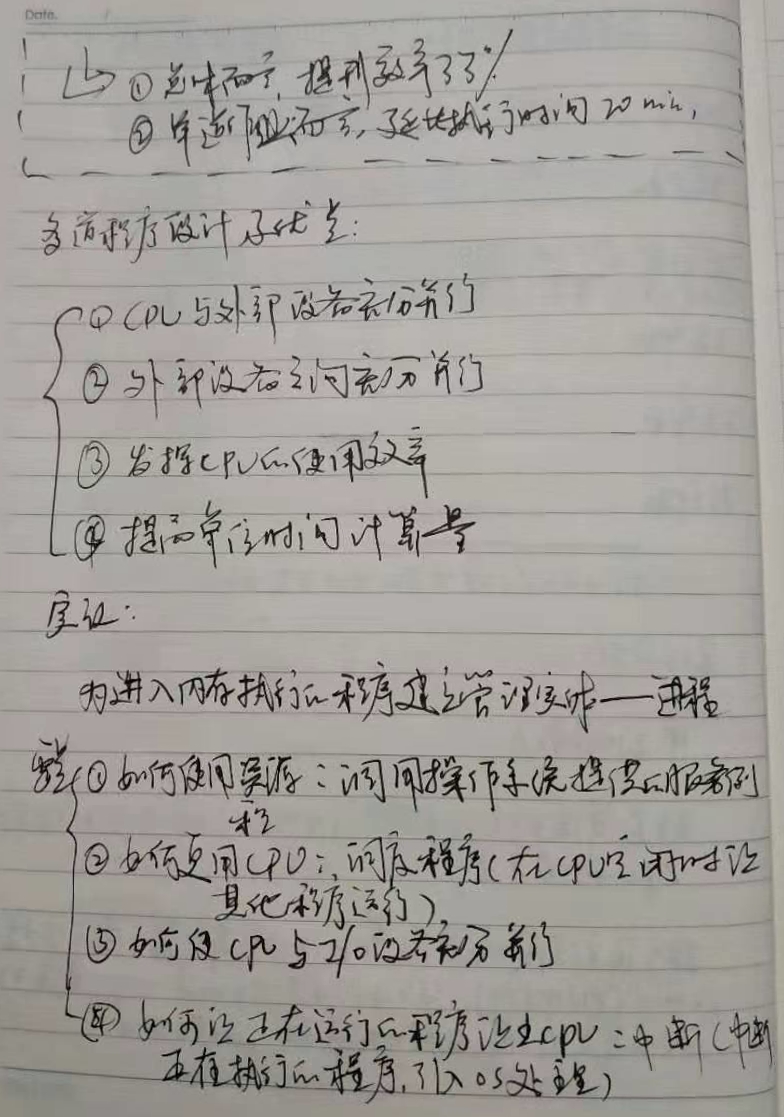 Date.
① 总体而言, 提升效率33%
② 单道作业而言, 延长执行时间 20 min,
多道程序设计的优点:
① CPU与外部设备充分并行
② 外部设备之间充分并行
③ 发挥CPU的使用效率
④ 提高单位时间计算量
实现:
为进入内存执行的程序建立管理实体——进程
① 如何使用资源: 调用操作系统提供的服务例
程
② 如何复用CPU: 调度程序(在CPU空闲时让
其他程序运行)
③ 如何使CPU与I/O设备充分并行
④ 如何让正在运行的程序让出CPU: 中断(中断
正在执行的程序, 引入OS处理)